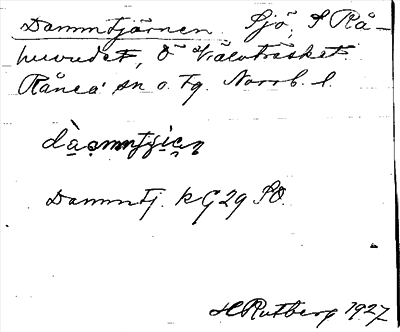 Dammtjärnen Sjö, S Rå-
huvudet, Ö Välträsket.
Råneå sn o. tg. Norrb. l.
Dammtj. kG 29 SO
H Rutberg 1927